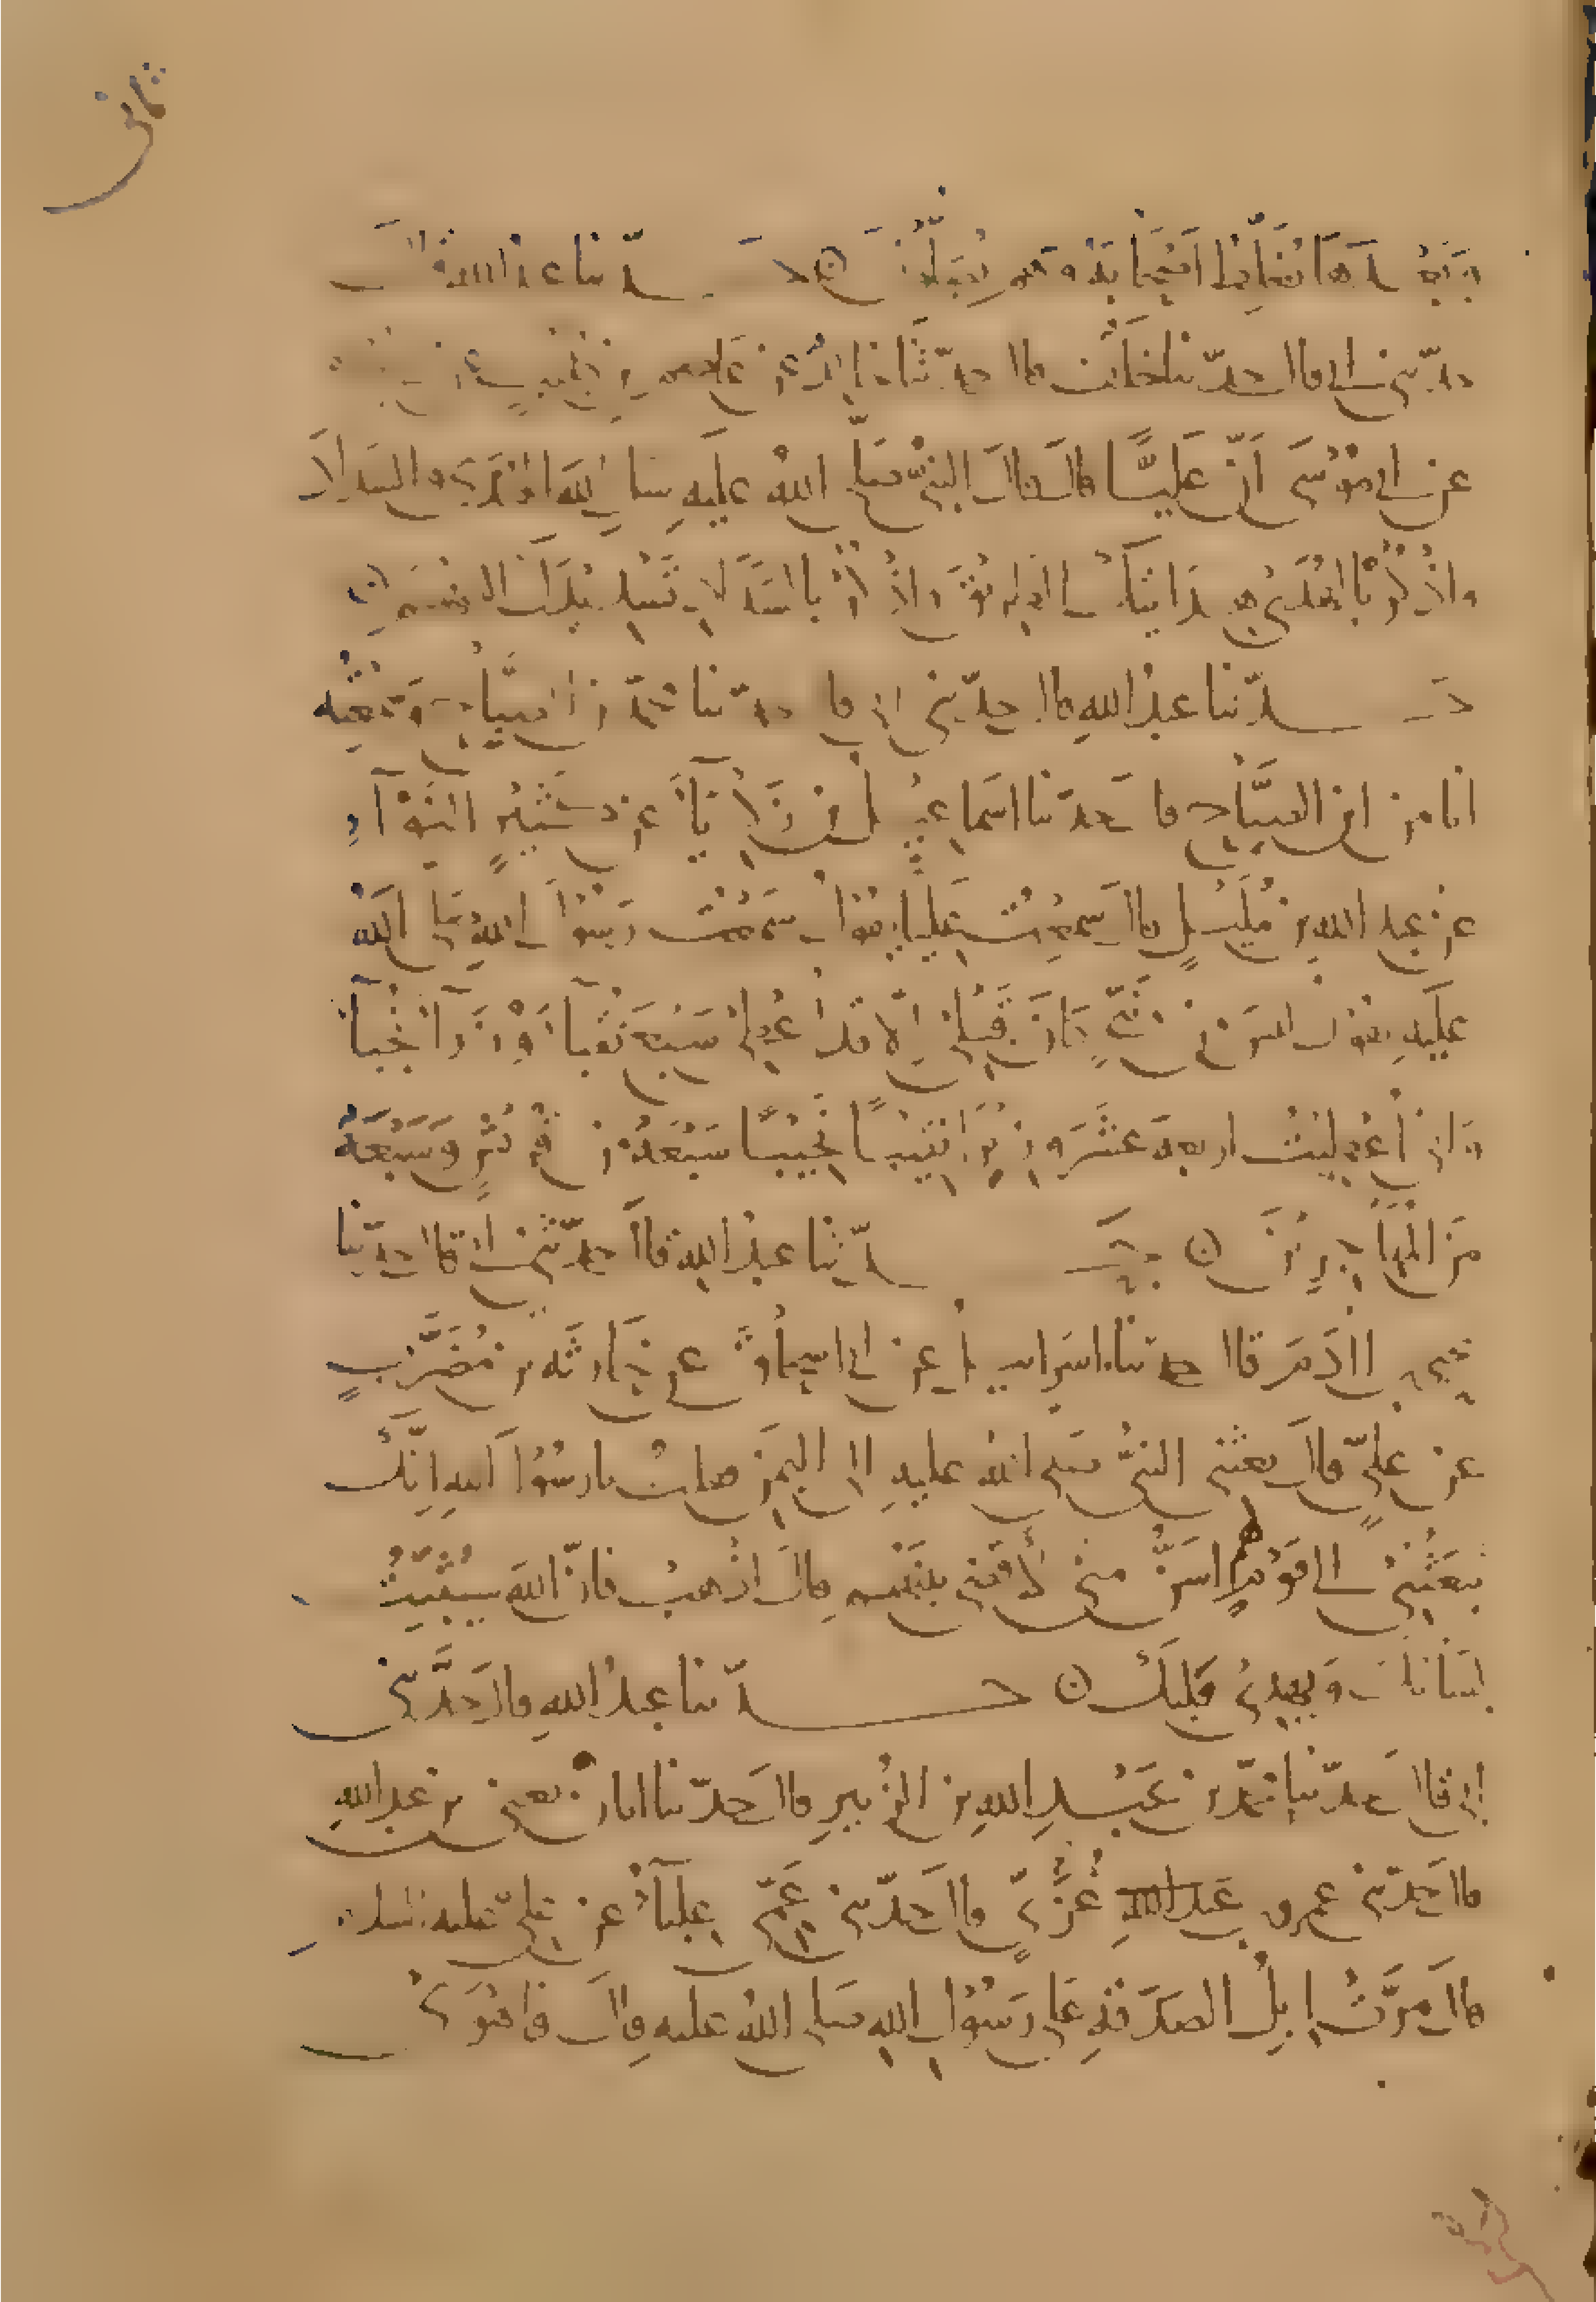 ثاني
حدثنا عبد الله قال
حدثني ابي قال حدثنا خلف قال حدثنا عن عاصم بن كليب عن
عن ابي موسى ان عليا قال قال النبي صلى الله عليه سل الله الهدى والسداد
واذكر بالهدى هدايتك الطريق واذكر بالسداد تسديدك السهم
حدثنا عبد الله قال حدثني ابي قال حدثنا محمد بن الصباح وسمعته
انا من ابن الصباح قال حدثنا اسماعيل بن زكريا عن كثير النواء
عن عبد الله بن مليل قال سمعت عليا يقول سمعت رسول الله صلى الله
عليه يقول ليس من نبي كان قبلي الا قد اعطي سبعة نقباء وزراء نجباء
واني اعطيت اربعة عشر وزيرا نقيبا نجيبا سبعة من قريش وسبعة
من المهاجرين حدثنا عبد الله قال حدثني ابي قال حدثنا
يحيى بن ادم قال حدثنا اسرايل عن ابي اسحاق عن حارثة بن مضرب
عن علي قال بعثني النبي صلى الله عليه الى اليمن فقلت يا رسول الله انك
تبعثني الى قوم هم اسن مني لاقضي بينهم قال اذهب فان الله سيثبت
لسانك ويهدي قلبك حدثنا عبد الله قال حدثني
ابي قال حدثنا محمد بن عبد الله بن الزبير قال حدثنا ابان يعني بن عبد الله
قال حدثني عمرو بن عبد الله غزي قال حدثني عمي علباء عن علي عليه السلام
قال مرت ابل الصدقة على رسول الله صلى الله عليه قال فاهوى